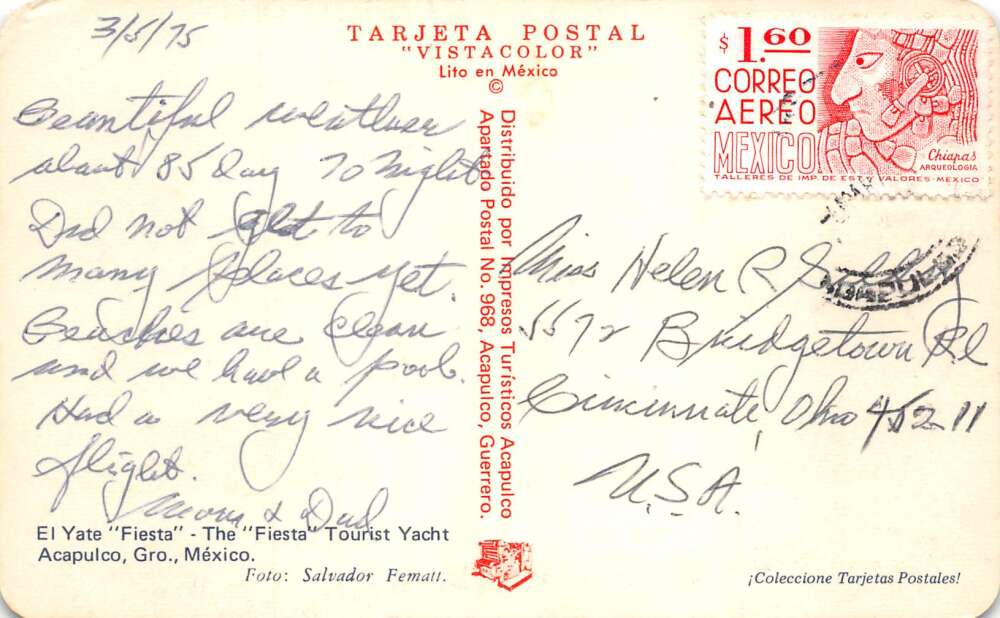 3/5/75
Beautiful weather
about 85 Day 70 Night
Did not get to
many places yet.
Beaches are clean
and we have a pool.
Had a very nice
flight.
Mom & Dad
El Yate "Fiesta" - The "Fiesta" Tourist Yacht
Acapulco, Gro., México.
Foto: Salvador Fematt.
TARJETA POSTAL
"VISTACOLOR"
Lito en México
©
Distribuido por Impresos Turísticos Acapulco
Apartado Postal No. 968, Acapulco, Guerrero.
$1.60
CORREO
AEREO
MEXICO
Chiapas
ARQUEOLOGIA
TALLERES DE IMP. DE EST. Y VALORES-MEXICO
Miss Helen R
5572 Bridgetown Rd
Cincinnati, Ohio 45211
U.S.A.
¡Coleccione Tarjetas Postales!